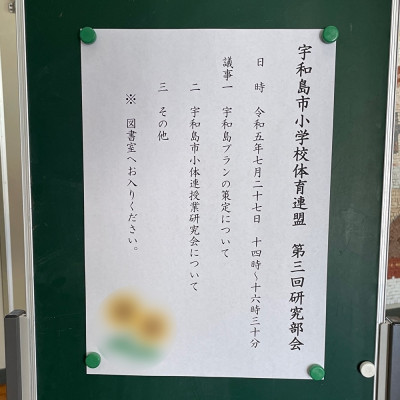 宇和島市小学校体育連盟　第三回研究部会
日　時　令和五年七月二十七日　十四時～十六時三十分
議事一　宇和島プランの策定について
二　宇和島市小体連授業研究会について
三　その他
※　図書室へお入りください。